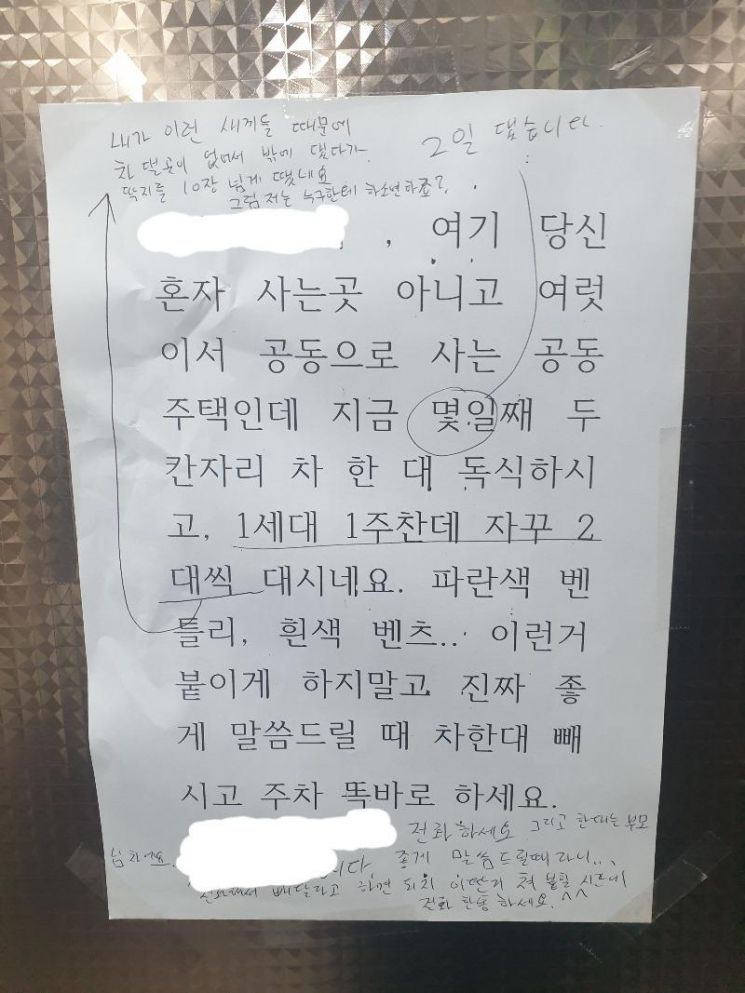 내가 이런 새끼들 때문에
차 댈 곳이 없어서 밖에 댔다가
딱지를 10장 넘게 뗐네요
그럼 저는 누구한테 하소연하죠?
2일 댔습니다.
, 여기 당신
혼자 사는곳 아니고 여럿
이서 공동으로 사는 공동
주택인데 지금 몇일째 두
칸자리 차 한 대 독식하시
고, 1세대 1주찬데 자꾸 2
대씩 대시네요. 파란색 벤
틀리, 흰색 벤츠.. 이런거
붙이게 하지말고 진짜 좋
게 말씀드릴 때 차한대 빼
시고 주차 똑바로 하세요.
전화하세요. 그리고 한대는 부모
님 차에요. 니다. 좋게 말씀드릴때 라니...
빼달라고 하면 되지 이딴거 쳐 붙힐 시간에
전화 한통 하세요. ^^